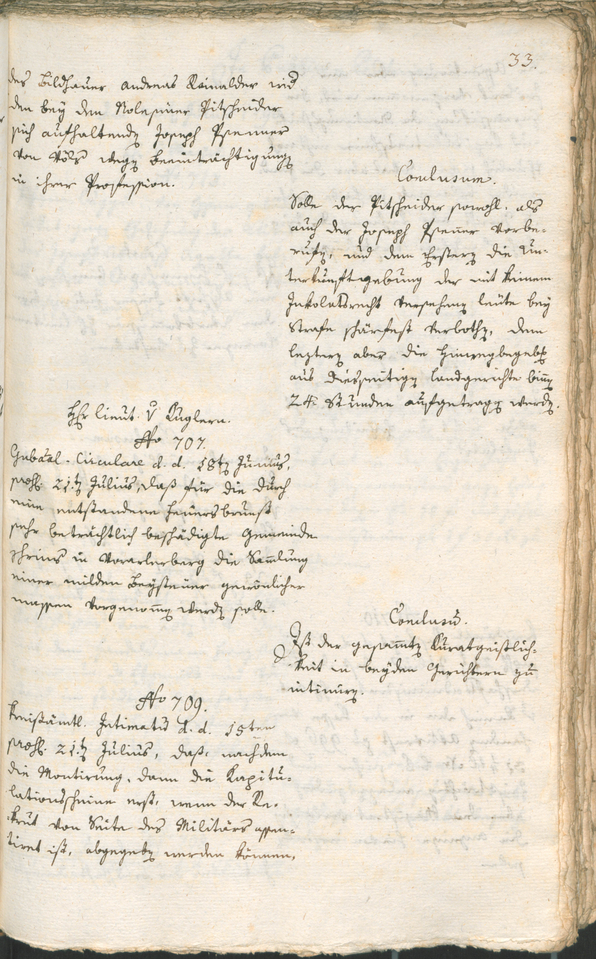 33.
des Bildhauer Andreas Kainalder und
den bey dem Nolesiner Pitscheider
sich aufhaltendn Joseph Psenner
von Völs wegn beeinträchtigungn
in ihrer Profession.
Conclusum.
Solle der Pitscheider sowohl, als
auch der Joseph Psenner vorbe-
rufn, und dem Erstern die Un-
terkunftgebung der mit keinem
Inkolatsrecht versehenen leüte bey
Strafe schärfest verbothn, dem
leztern aber die Hinwegbegebg
aus diesseitign Landgerichte binn
24 Stunden aufgetragn werdn.
Hr lieut. v Kuglern.
No 707.
Gubâal-Circulare d. d. 18tn Junius,
prs. 21tn Julius, daß für die durch
eine entstandene Feuersbrunst
sehr beträchtlich beschädigte Gemeinde
in Vorarlberg die Samlung
einer milden Beysteuer gewönlicher
massen vorgenommn werdn solle.
Conclusū.
Ist der gesammtn Kuratgeistlich-
keit in beyden Gerichtern zu
intimirn.
No 709.
Kreisämtl. Intimatū d. d. 15ten
prs. 21tn Julius, daß, nachdem
die Montirung, dann die Kapitu-
lationsscheine erst, wenn der Re-
krut von Seite des Militärs assen-
tiret ist, abgegebn werden können,